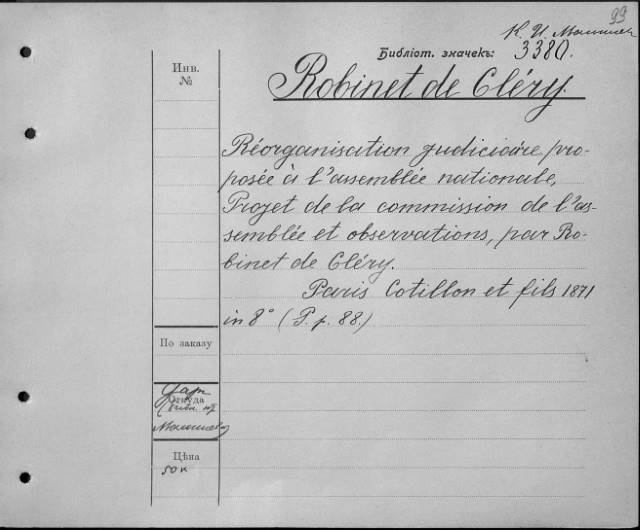 99
К. И. Малышев
Библіот. значекъ: 3380.
Инв.
№
Robinet de Cléry.
Réorganisation judiciaire pro-
posée à l'assemblée nationale,
Projet de la commission de l'as-
semblée et observations, par Ro-
binet de Cléry.
Paris Cotillon et fils 1871
in 8° (P. p. 88.)
По заказу
Даръ
Откуда
Малышева
Цѣна
50 к